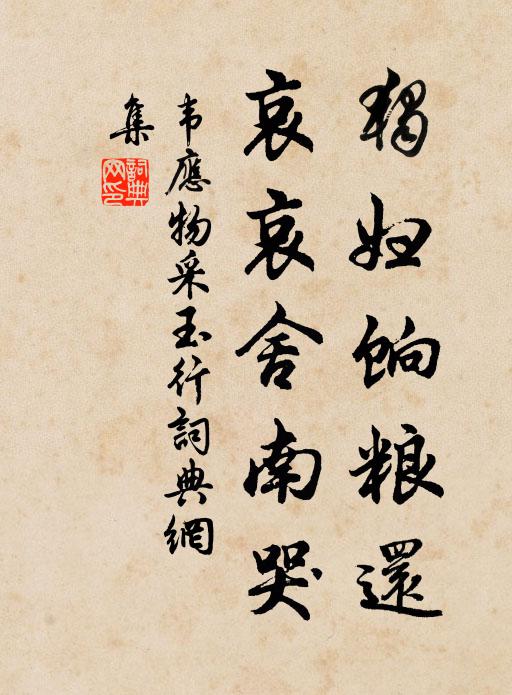 獨妇餉粮還
哀哀舍南哭
韦應物采玉行詞典網
集
詞典網印